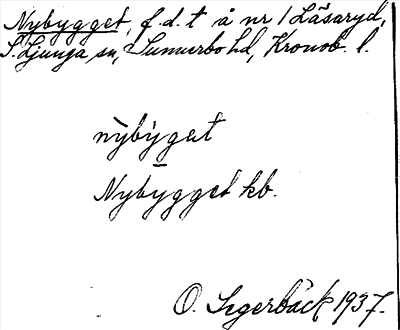 Nybygget, f.d. t å nr 1 Läsaryd,
S. Ljunga sn, Sunnerbo hd, Kronob. l.
nỳbýget
Nybygget kb.
O. Segerbäck 1937.